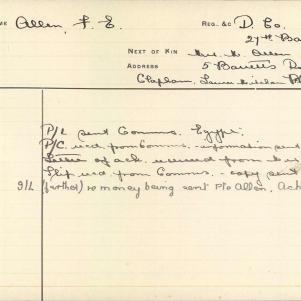 ME Allen, F. E. REG. &C D Co.
27th Ba
NEXT OF KIN Mrs. M. Allen
ADDRESS 5 Barretts
Clapham,
P/L sent Comms. Egypt.
P/C recd. from Comms. - information sent
Letter of ack. received from
Slip recd. from Comms. - copy sent
9/2 (further) re money being sent Pte Allen. Ack